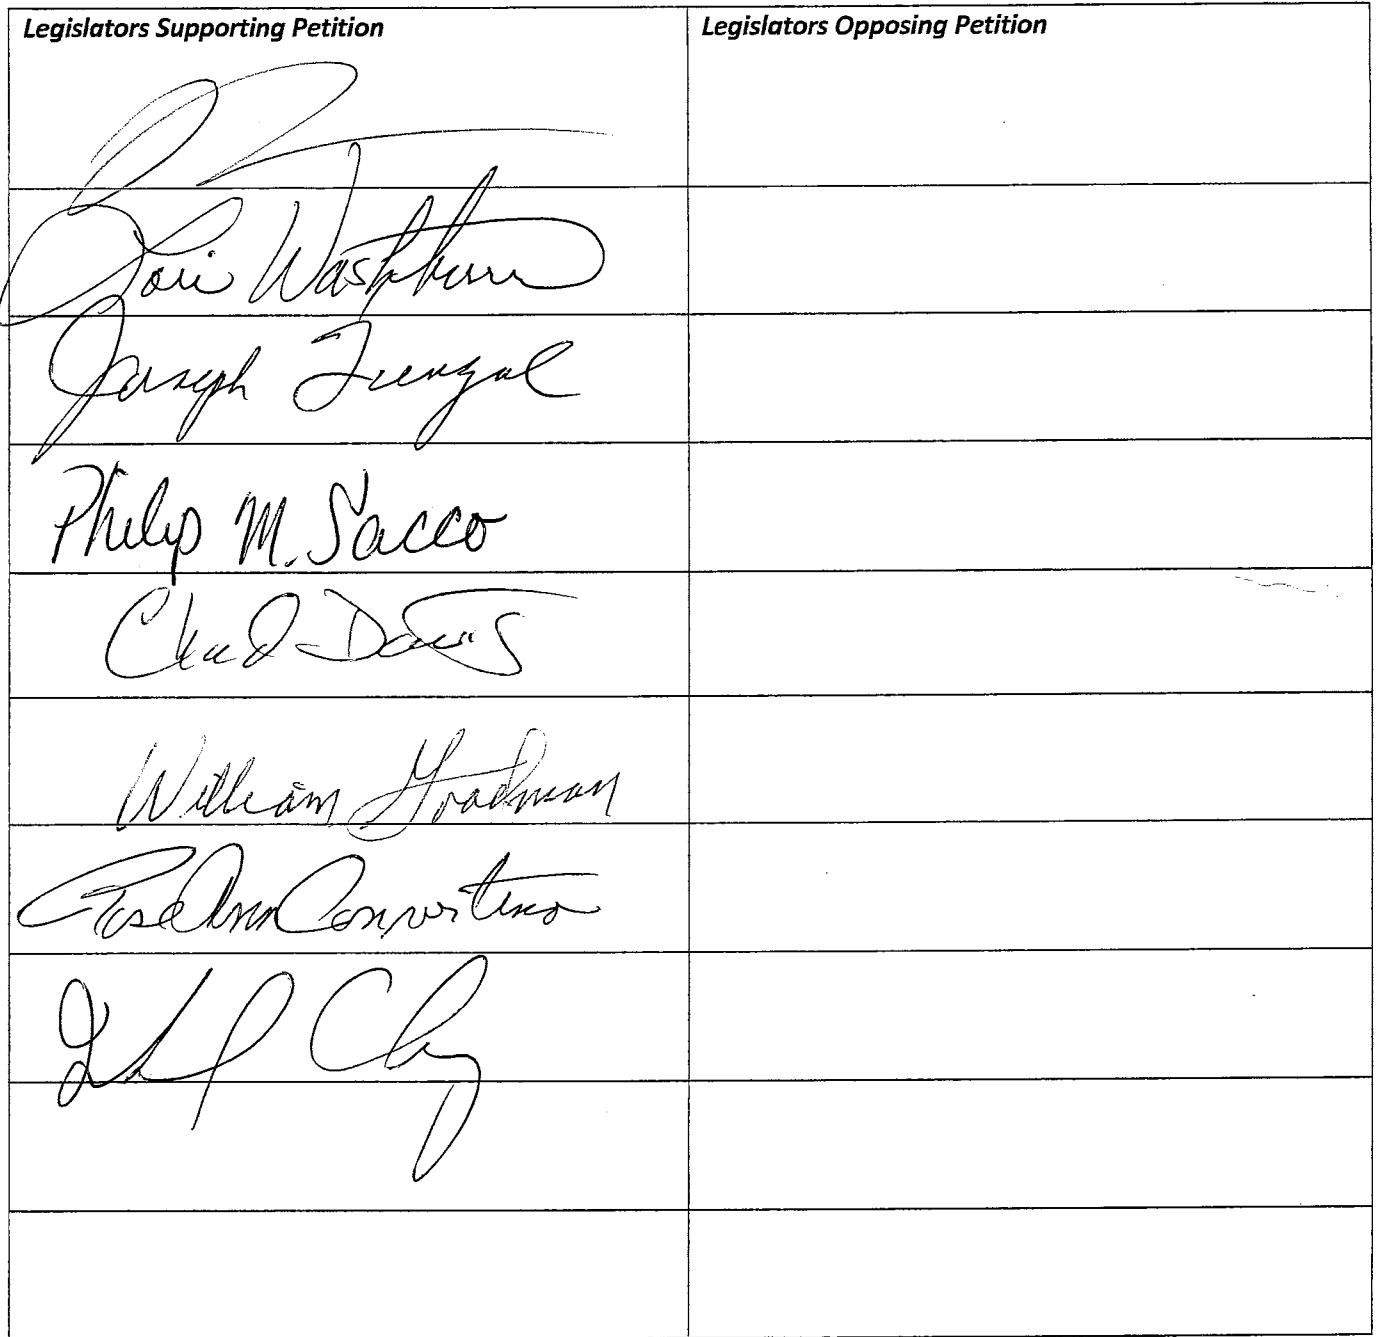 Legislators Supporting Petition
Legislators Opposing Petition
Lori Washburn
Joseph
Philip M. Sacco
Chad Davis
William Goodman
RoseAnn Convertino